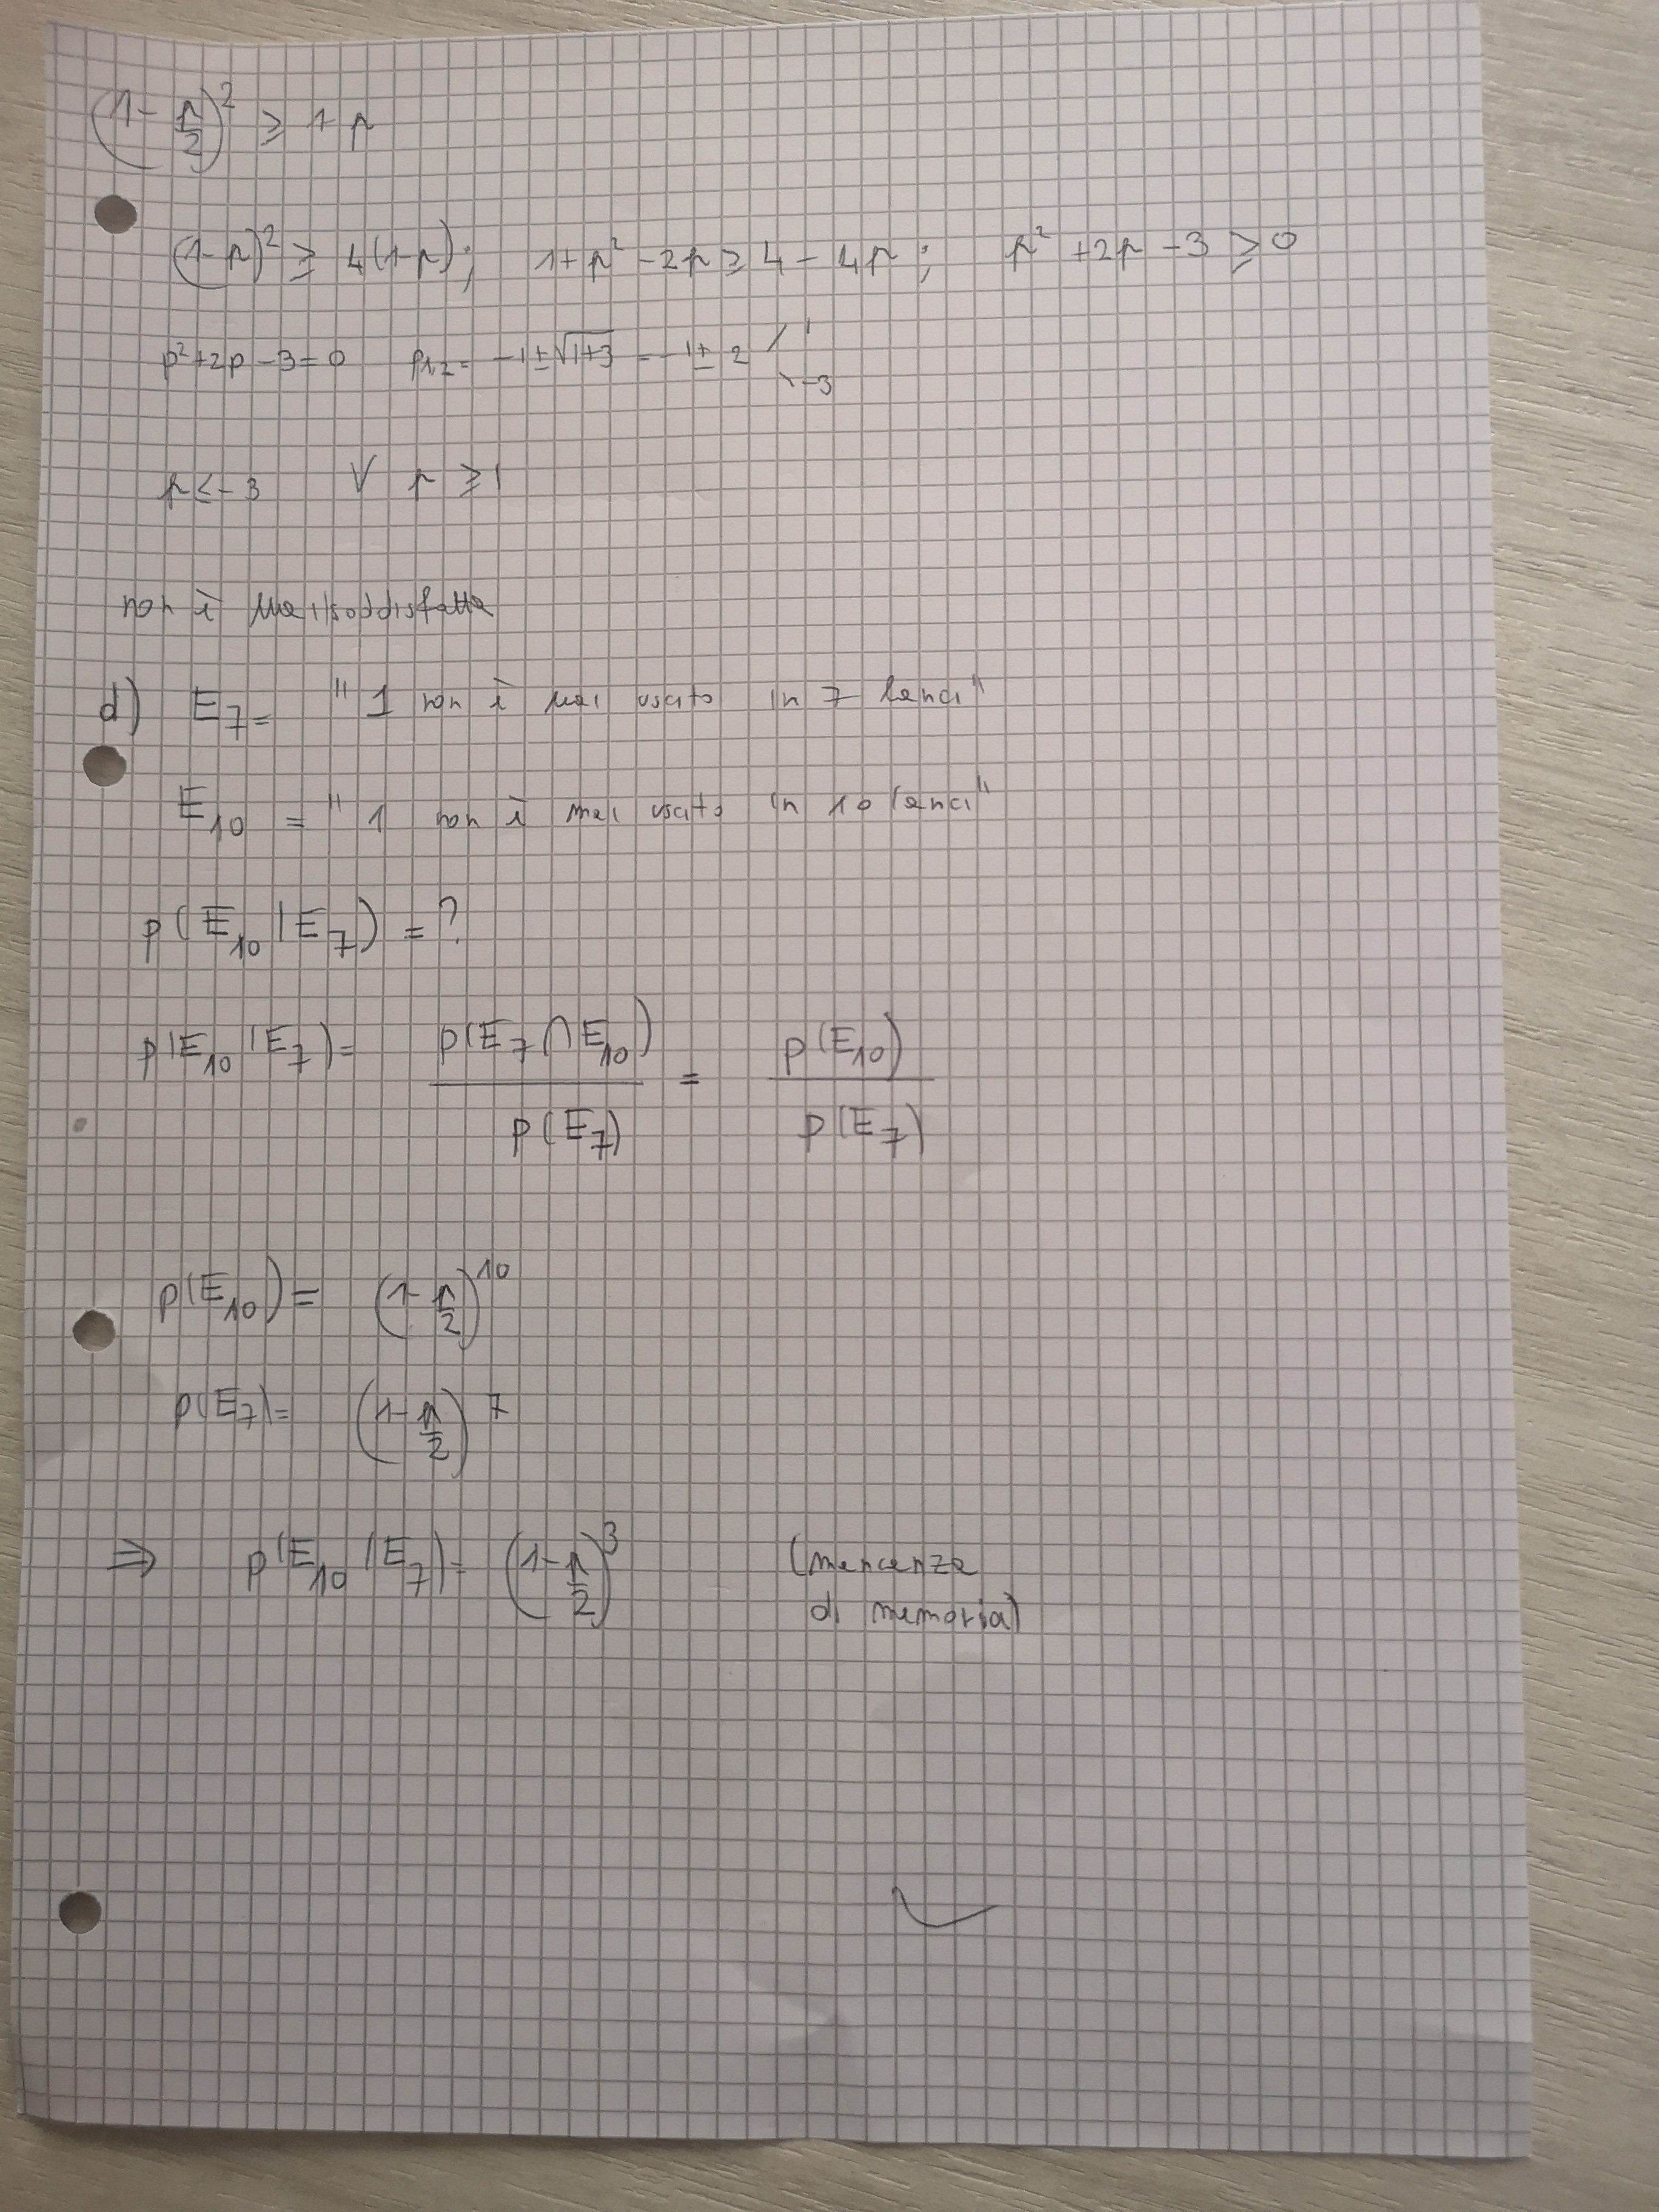 (1 - p/2)² ≥ 1 - p
(1-p)² ≥ 4(1-p); 1+p² -2p ≥ 4 - 4p; p² +2p -3 ≥ 0
p²+2p-3=0 p₁,₂= -1±√1+3 = -1± 2 / 1 \ -3
p ≤ -3 V p ≥ 1
non è mai soddisfatta
d) E₇ = " 1 non è mai uscito in 7 lanci"
E₁₀ = " 1 non è mai uscito in 10 lanci"
p(E₁₀|E₇) = ?
p(E₁₀|E₇) = p(E₇∩E₁₀) / p(E₇) = p(E₁₀) / p(E₇)
p(E₁₀) = (1- p/2)¹⁰
p(E₇) = (1- p/2)⁷
⇒ p(E₁₀|E₇) = (1- p/2)³ (mancanza
di memoria)